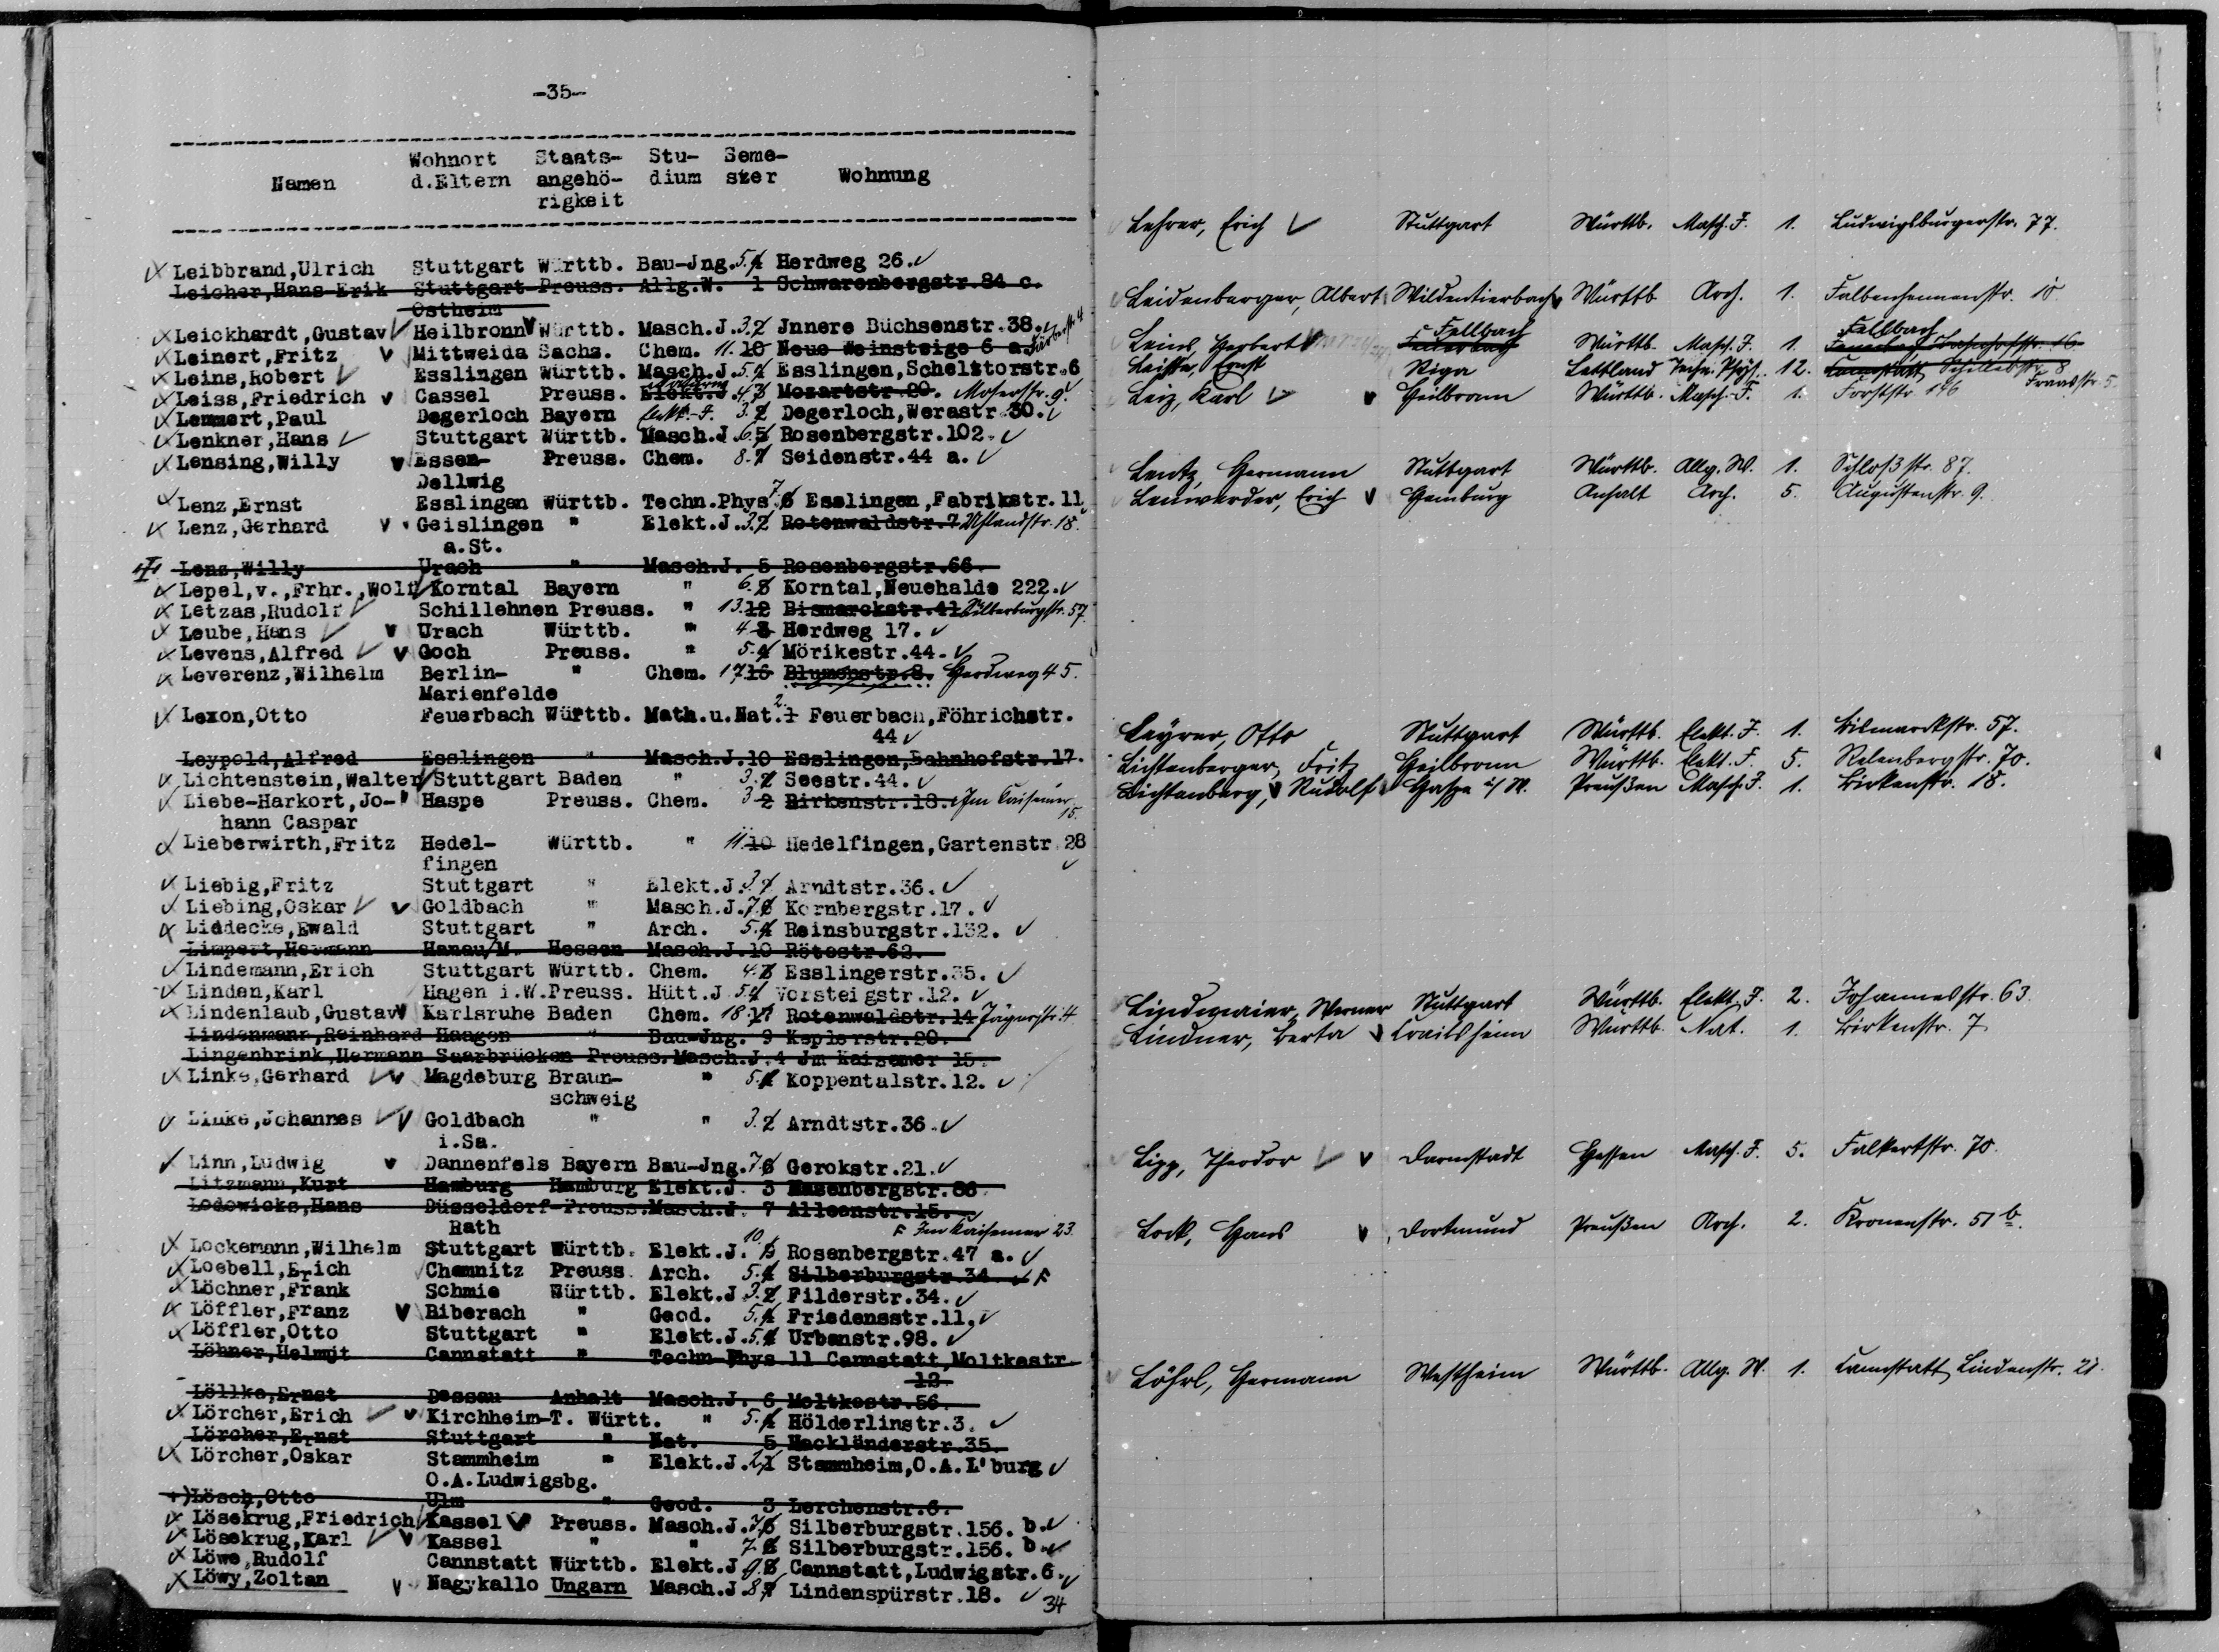 -35-
Namen Wohnort d.Eltern Staats-angehö-rigkeit Stu-dium Seme-ster Wohnung
Leibbrand,Ulrich Stuttgart Württb. Bau-Jng. 5. 4 Herdweg 26.
Leicher,Hans Erik Stuttgart Preuss. Allg.W. 1 Schwarenbergstr.84 c.
Ostheim
Leickhardt,Gustav Heilbronn Württb. Masch.J. 3. 2 Jnnere Büchsenstr.38.
Leinert,Fritz Mittweida Sachs. Chem. 11. 10 Neue Weinsteige 6 a.
Leins,Robert Esslingen Württb. Masch.J. 5. 4 Esslingen,Schelztorstr.6
Leiss,Friedrich Cassel Preuss. Elekt.J 4. 3 Mozartstr.20. Moserstr. 9.
Lemmert,Paul Degerloch Bayern Elekt.-J. 3. 2 Degerloch,Werastr.30.
Lenkner,Hans Stuttgart Württb. Masch.J. 6. 5 Rosenbergstr.102.
Lensing,Willy Essen- Preuss. Chem. 8. 7 Seidenstr.44 a.
Dellwig
Lenz,Ernst Esslingen Württb. Techn.Phys 7 6 Esslingen,Fabrikstr.11
Lenz,Gerhard Geislingen " Elekt.J. 3. 2 Rotenwaldstr.7 Uhlandstr. 18.
a.St.
Lenz,Willy Urach " Masch.J. 5 Rosenbergstr.66.
Lepel,v.,Frhr.,Wolf Korntal Bayern " 6. 5 Korntal,Neuehalde 222.
Letzas,Rudolf Schillehnen Preuss. " 13. 12 Bismarckstr.41 Silberburgstr. 57.
Leube,Hans Urach Württb. " 4 3 Herdweg 17.
Levens,Alfred Goch Preuss. " 5. 4 Mörikestr.44.
Leverenz,Wilhelm Berlin- " Chem. 17 16 Blumenstr.8. Herdweg 45.
Marienfelde
Lexon,Otto Feuerbach Württb. Math.u.Nat. 2. 1 Feuerbach,Föhrichstr.
44
Leypold,Alfred Esslingen " Masch.J.10 Esslingen,Bahnhofstr.17.
Lichtenstein,Walter Stuttgart Baden " 3. 2 Seestr.44.
Liebe-Harkort,Jo- Haspe Preuss. Chem. 3 2 Birkenstr.18. Im Kaisemer 15.
hann Caspar
Lieberwirth,Fritz Hedel- Württb. " 11. 10 Hedelfingen,Gartenstr.28
fingen
Liebig,Fritz Stuttgart " Elekt.J. 3. 2 Arndtstr.36.
Liebing,Oskar Goldbach " Masch.J. 7. 6 Kornbergstr.17.
Liddecke,Ewald Stuttgart " Arch. 5. 4 Reinsburgstr.132.
Limpert,Hermann Hanau/M. Hessen Masch.J.10 Rötestr.62.
Lindemann,Erich Stuttgart Württb. Chem. 4. 3 Esslingerstr.35.
Linden,Karl Hagen i.W.Preuss. Hütt.J 5. 4 Vorsteigstr.12.
Lindenlaub,Gustav Karlsruhe Baden Chem. 18 17 Rotenwaldstr.14 Jägerstr. 4.
Lindenmann,Reinhard Haagen " Bau-Jng. 9 Keplerstr.20.
Lingenbrink,Hermann Saarbrücken Preuss.Masch.J.4 Jm Kaisemer 15.
Linke,Gerhard Magdeburg Braun- " 5. 4 Koppentalstr.12.
schweig
Linke,Johannes Goldbach " " 3. 2 Arndtstr.36.
i.Sa.
Linn,Ludwig Dannenfels Bayern Bau-Jng. 7. 6 Gerokstr.21.
Litzmann,Kurt Hamburg Hamburg Elekt.J. 3 Hasenbergstr.86.
Lodowicks,Hans Düsseldorf-Preuss.Masch.J. 7 Alleenstr.15.
Rath F Im Kaisemer 23.
Lockemann,Wilhelm Stuttgart Württb. Elekt.J. 10. Rosenbergstr.47 a.
Loebell,Erich Chemnitz Preuss. Arch. 5. 4 Silberburgstr.34. F
Löchner,Frank Schmie Württb. Elekt.J 3. 2 Filderstr.34.
Löffler,Franz Biberach " Geod. 5. 4 Friedensstr.11.
Löffler,Otto Stuttgart " Elekt.J. 5. 4 Urbanstr.98.
Löhner,Helmut Cannstatt " Techn Phys 11 Cannstatt,Moltkestr.
12.
Löllke,Ernst Dessau Anhalt Masch.J. 6 Moltkestr.56.
Lörcher,Erich Kirchheim-T. Württ. " 5. 4 Hölderlinstr.3.
Lörcher,Ernst Stuttgart " Nat. 5 Hackländerstr.35.
Lörcher,Oskar Stammheim " Elekt.J. 2. 1 Stammheim,O.A.L'burg
O.A.Ludwigsbg.
+)Lösch,Otto Ulm " Geod. 3 Lerchenstr.6.
Lösekrug,Friedrich Kassel Preuss. Masch.J. 7. 6 Silberburgstr.156. b.
Lösekrug,Karl Kassel " " 7. 6 Silberburgstr.156. b.
Löwe,Rudolf Cannstatt Württb. Elekt.J 9. 8 Cannstatt,Ludwigstr.6.
Löwy,Zoltan Nagykallo Ungarn Masch.J. 8. 7 Lindenspürstr.18.
34
Lehrer, Erich Stuttgart Württb. Masch. J. 1. Ludwigsburgerstr. 77.
Leidenberger, Albert Wildentierbach Württb Arch. 1. Falbenhennenstr. 10.
Leins, Herbert Fellbach Feuerbach Württb. Masch. J. 1. Fellbach
Leister, Ernst Riga Lettland Techn. Phys. 12. Cannstatt, Schillerstr. 8
Leiz, Karl Heilbronn Württb. Masch.-J. 1. Forststr. 146
Lentz, Hermann Stuttgart Württb. Allg. W. 1. Schloßstr. 87.
Leuwerder, Erich Hamburg Anhalt Arch. 5. Augustenstr. 9.
Leyrer, Otto Stuttgart Württb. Elekt. J. 1. Bismarckstr. 57.
Lichtenberger, Fritz Heilbronn Württb. Elekt. J. 5. Relenbergstr. 70.
Lichtenberg, Rudolf Haspe i/W. Preußen Masch. J. 1. Birkenstr. 18.
Lindmaier, Werner Stuttgart Württb. Elekt. J. 2. Johannesstr. 63.
Lindner, Berta Crailsheim Württb. Nat. 1. Birkenstr. 7
Lipp, Theodor Darmstadt Hessen Masch. J. 5. Falkertstr. 70.
Lock, Hans Dortmund Preußen Arch. 2. Kronenstr. 51 b.
Löhrl, Hermann Westheim Württb. Allg. W. 1. Cannstatt, Lindenstr. 21.